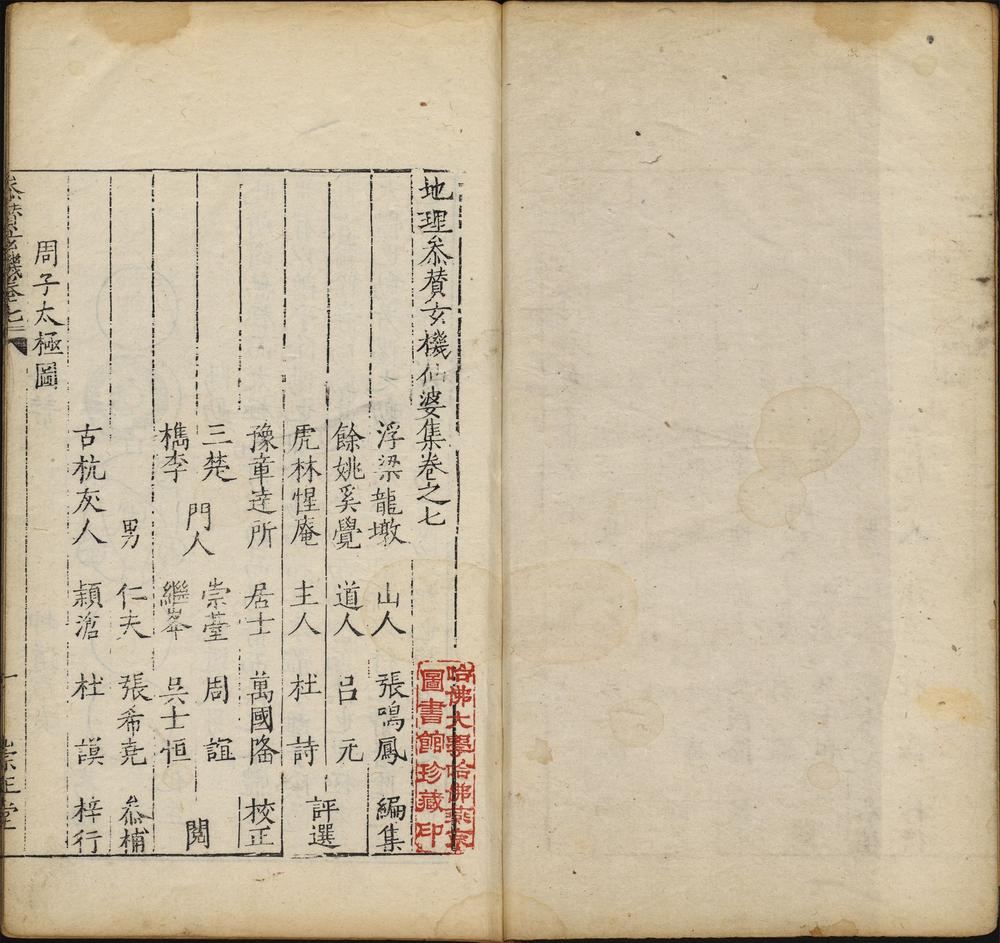 地理叅賛玄機仙婆集卷之七
浮梁龍墩 山人 張鳴鳳 編集
餘姚奚覺 道人 吕元
虎林惺庵 主人 杜詩 評選
豫章達所 居士 萬國隆 校正
三楚 門人 崇臺 周誼 閲
檇李 繼峯 吳士恒
男 仁夫 張希堯 叅補
古杭灰人 穎滄 杜謨 梓行
周子太極圖
叅賛玄機卷七 一 崇正堂
哈佛大學哈佛燕京
圖書館珍藏印